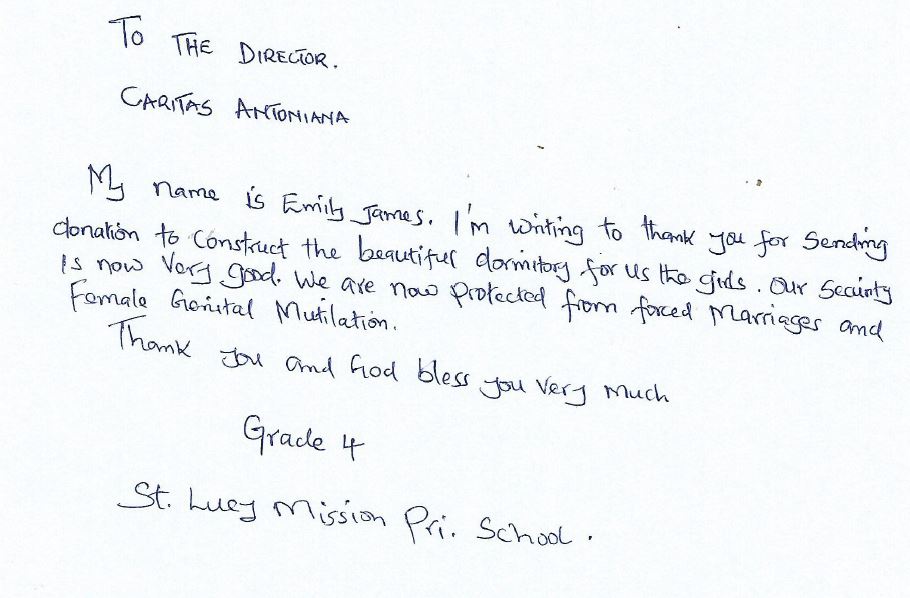 To THE DIRECTOR.
CARITAS ANTONIANA
My name is Emily James. I'm writing to thank you for Sending
donation to Construct the beautiful dormitory for us the girls. Our Security
Is now Very good. We are now protected from forced Marriages and
Female Genital Mutilation.
Thank you and God bless you very much
Grade 4
St. Lucy Mission Pri. School.